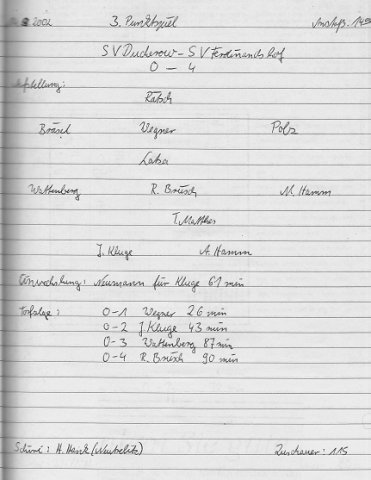 2002 3. Punktspiel Anstoß: 14⁰⁰
SV Ducherow – SV Ferdinandshof
0 – 4
Aufstellung:
Rätsch
Bräsel Wegner Polz
Laba
Wattenberg R. Brüsch M. Hamm
T. Matthes
J. Kluge A. Hamm
Einwechslung: Neumann für Kluge 61 min
Torfolge: 0-1 Wegner 26 min
0-2 J. Kluge 43 min
0-3 Wattenberg 87 min
0-4 R. Brüsch 90 min
Schiri: H. Hank (Neustrelitz) Zuschauer: 115